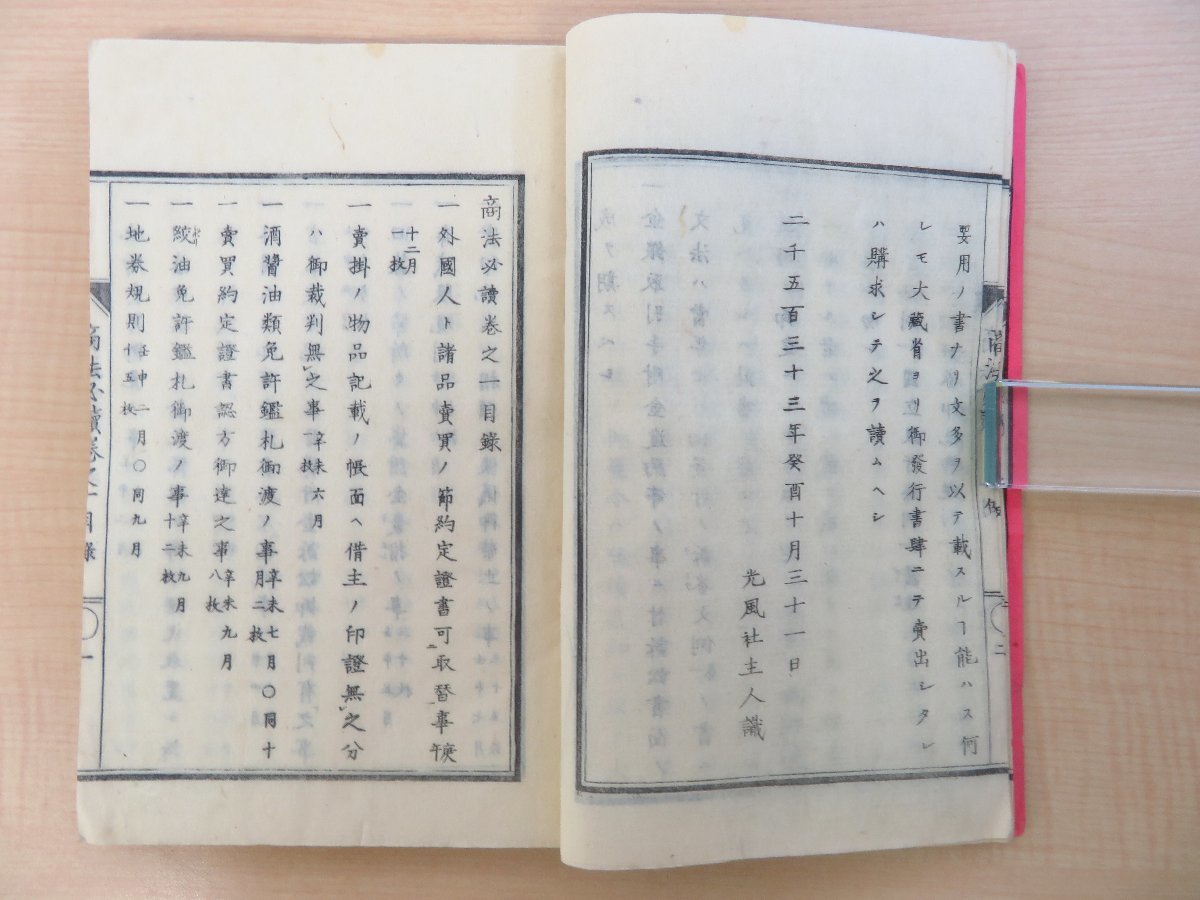 要用ノ書ナリ文多ヲ以テ載スルヿ能ハス何
レモ大藏省ヨリ御發行書肆ニテ賣出シタレ
ハ購求シテ之ヲ讀ムヘシ
二千五百三十三年癸酉十月三十一日
光風社主人識
商法必讀卷之一目錄
一外國人ト諸品賣買ノ節約定證書可取替事庚午
十二月
一枚
一賣掛ノ物品記載ノ帳面ヘ借主ノ印證無之分
ハ御裁判無之事辛未六月
一酒醬油類免許鑑札御渡ノ事辛未七月〇同十
月二枚
一賣買約定證書認方御達之事辛未九月
八枚
一絞油免許鑑札御渡ノ事辛未九月
十二枚
一地券規則壬申二月〇同九月
十五枚
商法必讀卷之一目錄
一
二